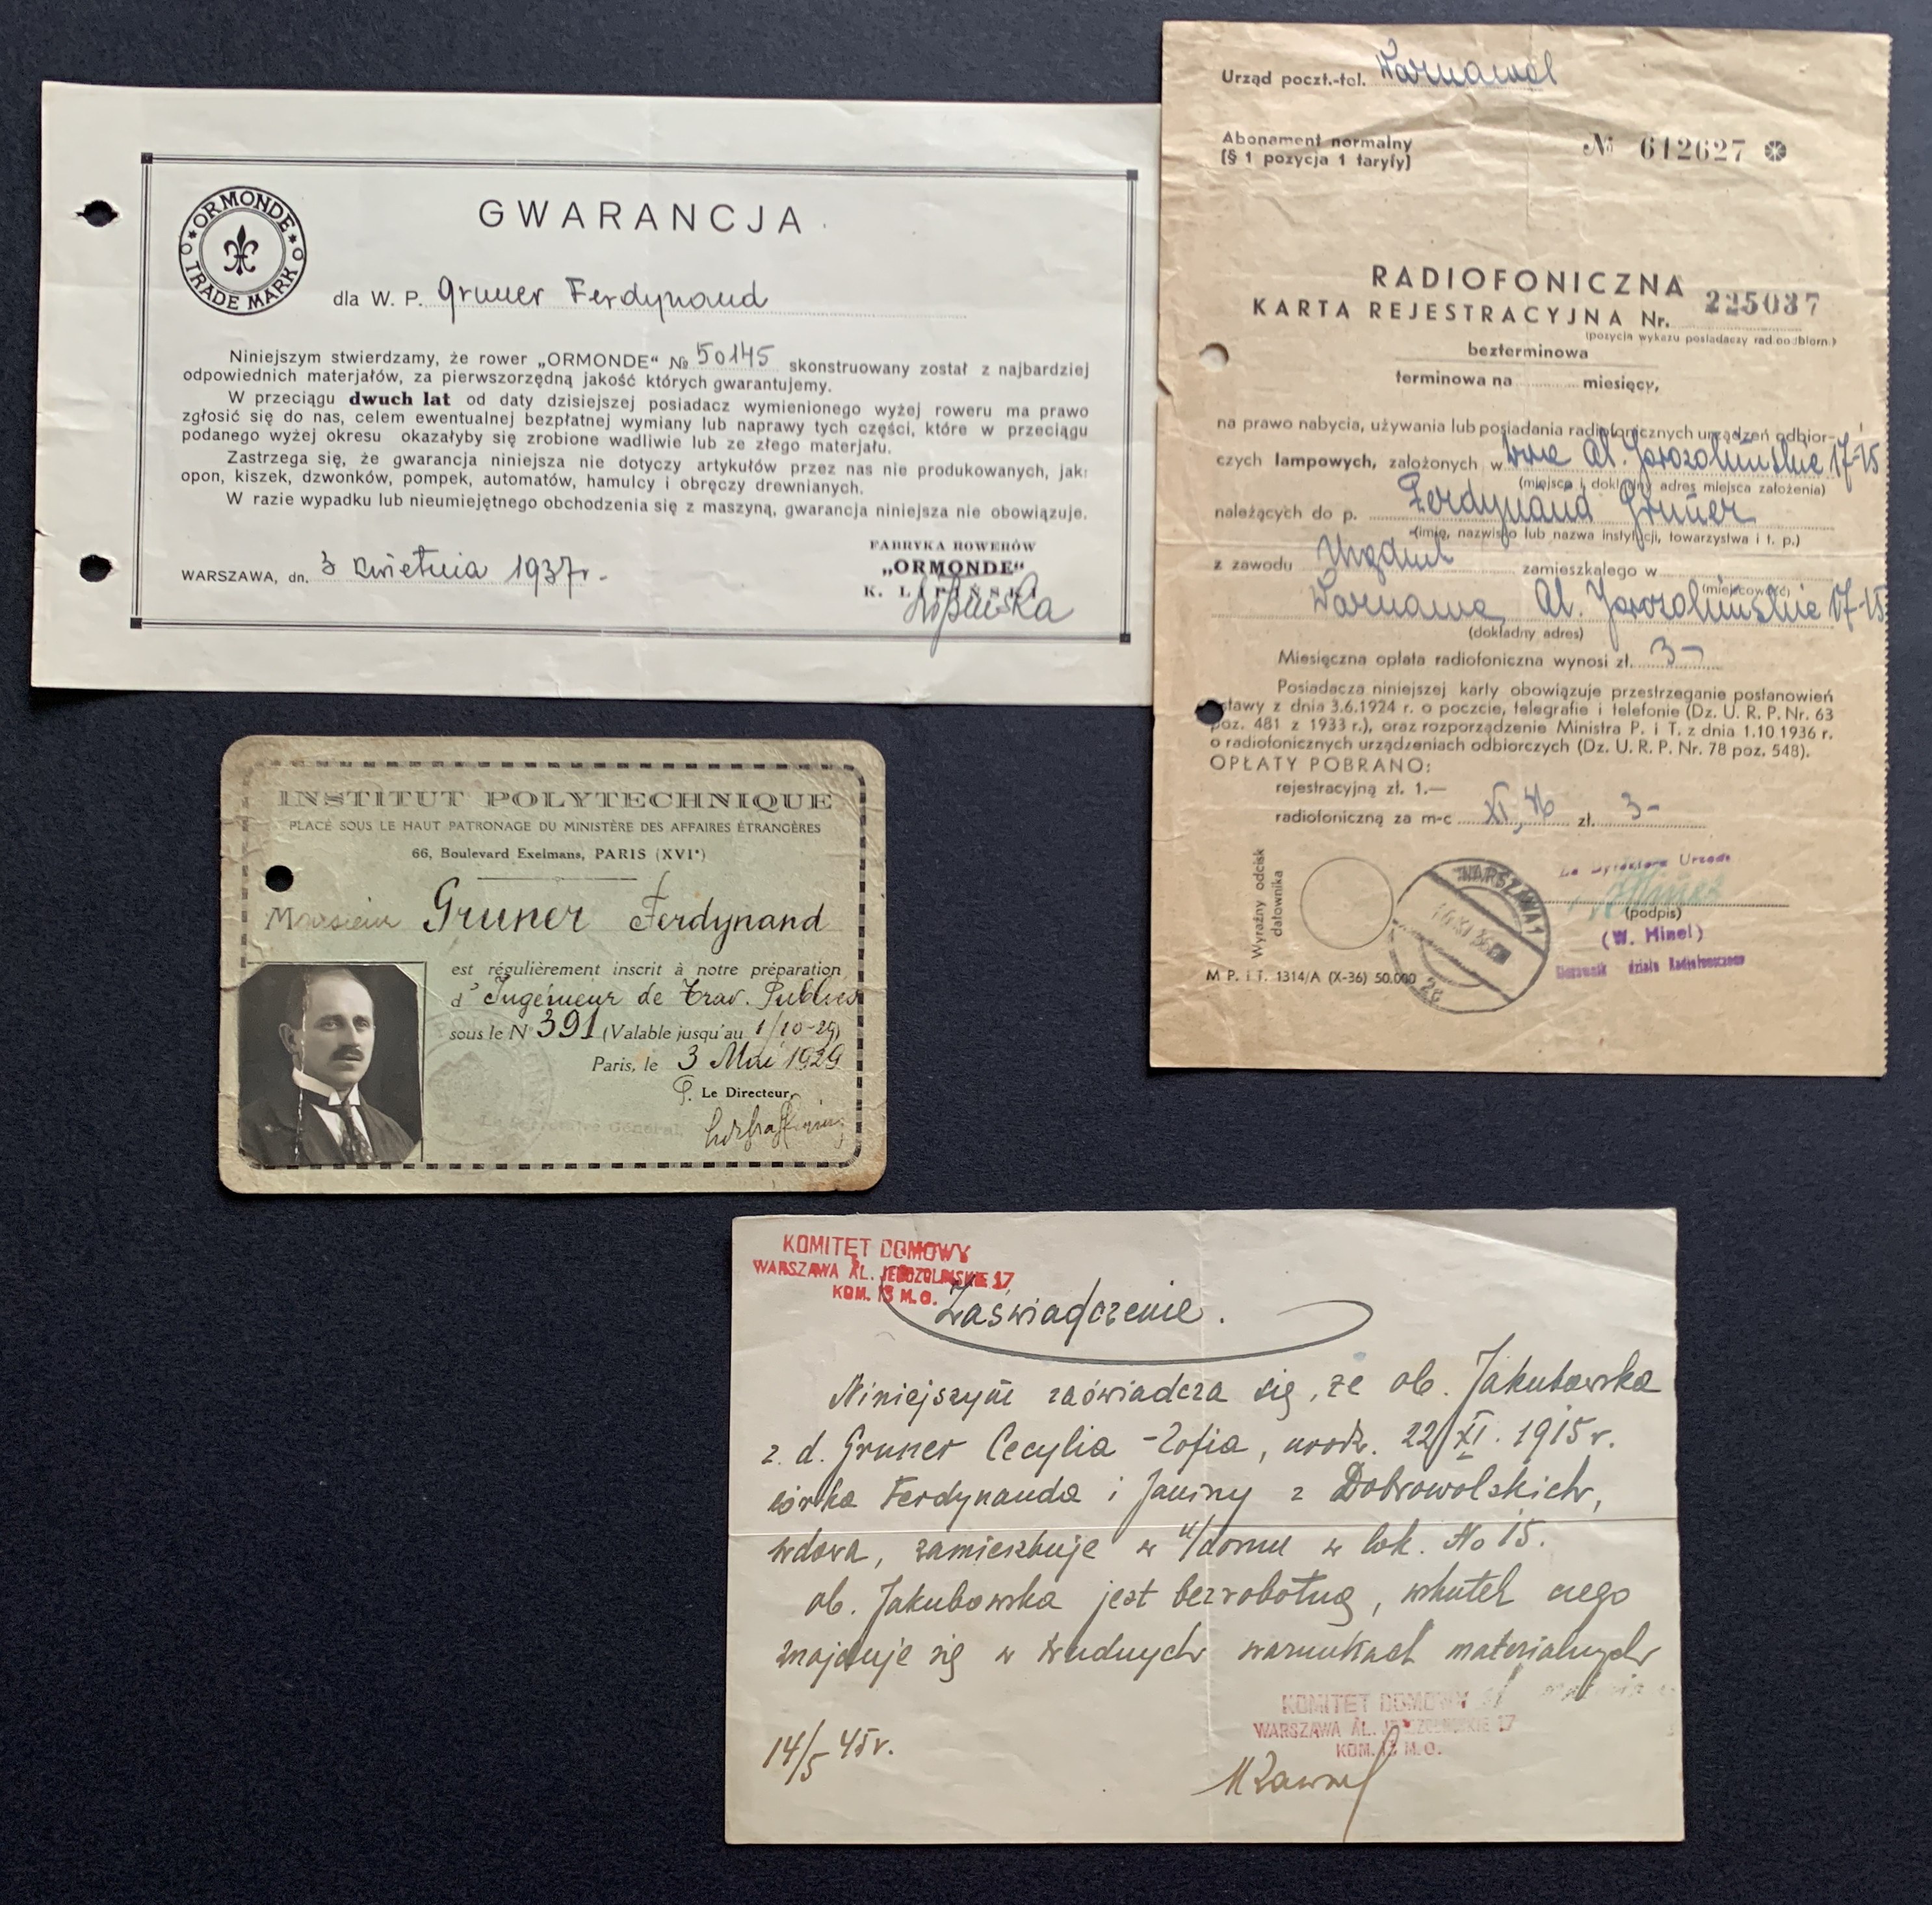 ORMONDE
TRADE MARK
GWARANCJA
dla W. P. Gruner Ferdynand
Niniejszym stwierdzamy, że rower „ORMONDE" № 50145 skonstruowany został z najbardziej
odpowiednich materjałów, za pierwszorzędną jakość których gwarantujemy.
W przeciągu dwuch lat od daty dzisiejszej posiadacz wymienionego wyżej roweru ma prawo
zgłosić się do nas, celem ewentualnej bezpłatnej wymiany lub naprawy tych części, które w przeciągu
podanego wyżej okresu okazałyby się zrobione wadliwie lub ze złego materjału.
Zastrzega się, że gwarancja niniejsza nie dotyczy artykułów przez nas nie produkowanych, jak:
opon, kiszek, dzwonków, pompek, automatów, hamulcy i obręczy drewnianych.
W razie wypadku lub nieumiejętnego obchodzenia się z maszyną, gwarancja niniejsza nie obowiązuje.
WARSZAWA, dn. 3 kwietnia 1937r.
FABRYKA ROWERÓW
„ORMONDE"
K. LIPIŃSKI
Urząd poczt.-tel.
Abonament normalny
(§ 1 pozycja 1 taryfy)
№ 612627
RADIOFONICZNA
KARTA REJESTRACYJNA Nr. 225037
(pozycja wykazu posiadaczy rad.oodbiorn.)
bezterminowa
terminowa na miesięcy,
na prawo nabycia, używania lub posiadania radiofonicznych urządzeń odbior-
czych lampowych, założonych w Wwa Al. Jerozolimskie 17-15
(miejsce i dokładny adres miejsca założenia)
należących do p. Ferdynand Gruner
(imię, nazwisko lub nazwa instytucji, towarzystwa i t. p.)
z zawodu zamieszkałego w
(miejscowość)
Warszawa Al. Jerozolimskie 17-15
(dokładny adres)
Miesięczna opłata radiofoniczna wynosi zł. 3-
Posiadacza niniejszej karty obowiązuje przestrzeganie postanowień
ustawy z dnia 3.6.1924 r. o poczcie, telegrafie i telefonie (Dz. U. R. P. Nr. 63
poz. 481 z 1933 r.), oraz rozporządzenie Ministra P. i T. z dnia 1.10.1936 r.
o radiofonicznych urządzeniach odbiorczych (Dz. U. R. P. Nr. 78 poz. 548).
OPŁATY POBRANO:
rejestracyjną zł. 1.—
radiofoniczną za m-c XI, zł. 3-
Wyraźny odcisk
datownika
WARSZAWA 1
Za Dyrektora Urzędu
(podpis)
(W. Hinel)
Kierownik działu Radiofonicznego
M P. i T. 1314/A (X-36) 50.000
INSTITUT POLYTECHNIQUE
PLACÉ SOUS LE HAUT PATRONAGE DU MINISTÈRE DES AFFAIRES ÉTRANGÈRES
66, Boulevard Exelmans, PARIS (XVIe)
Monsieur Gruner Ferdynand
est régulièrement inscrit à notre préparation
d'Ingénieur de Trav. Publics
sous le N 391 (Valable jusqu'au 1/10-29)
Paris, le 3 Mai 1929
P. Le Directeur,
Le Secrétaire Général,
KOMITET DOMOWY
WARSZAWA AL. JEROZOLIMSKIE 17,
KOM. 13 M.O.
Zaświadczenie.
Niniejszym zaświadcza się, że ob. Jakubowska
z. d. Gruner Cecylia-Zofia, urodz. 22/XI. 1915 r.
córka Ferdynanda i Janiny z Dobrowolskich,
wdowa, zamieszkuje w t/domu w lok. No 15.
ob. Jakubowska jest bezrobotną, wskutek czego
znajduje się w trudnych warunkach materialnych
KOMITET DOMOWY
WARSZAWA AL. JEROZOLIMSKIE 17
KOM. 13 M.O.
14/5 45 r.